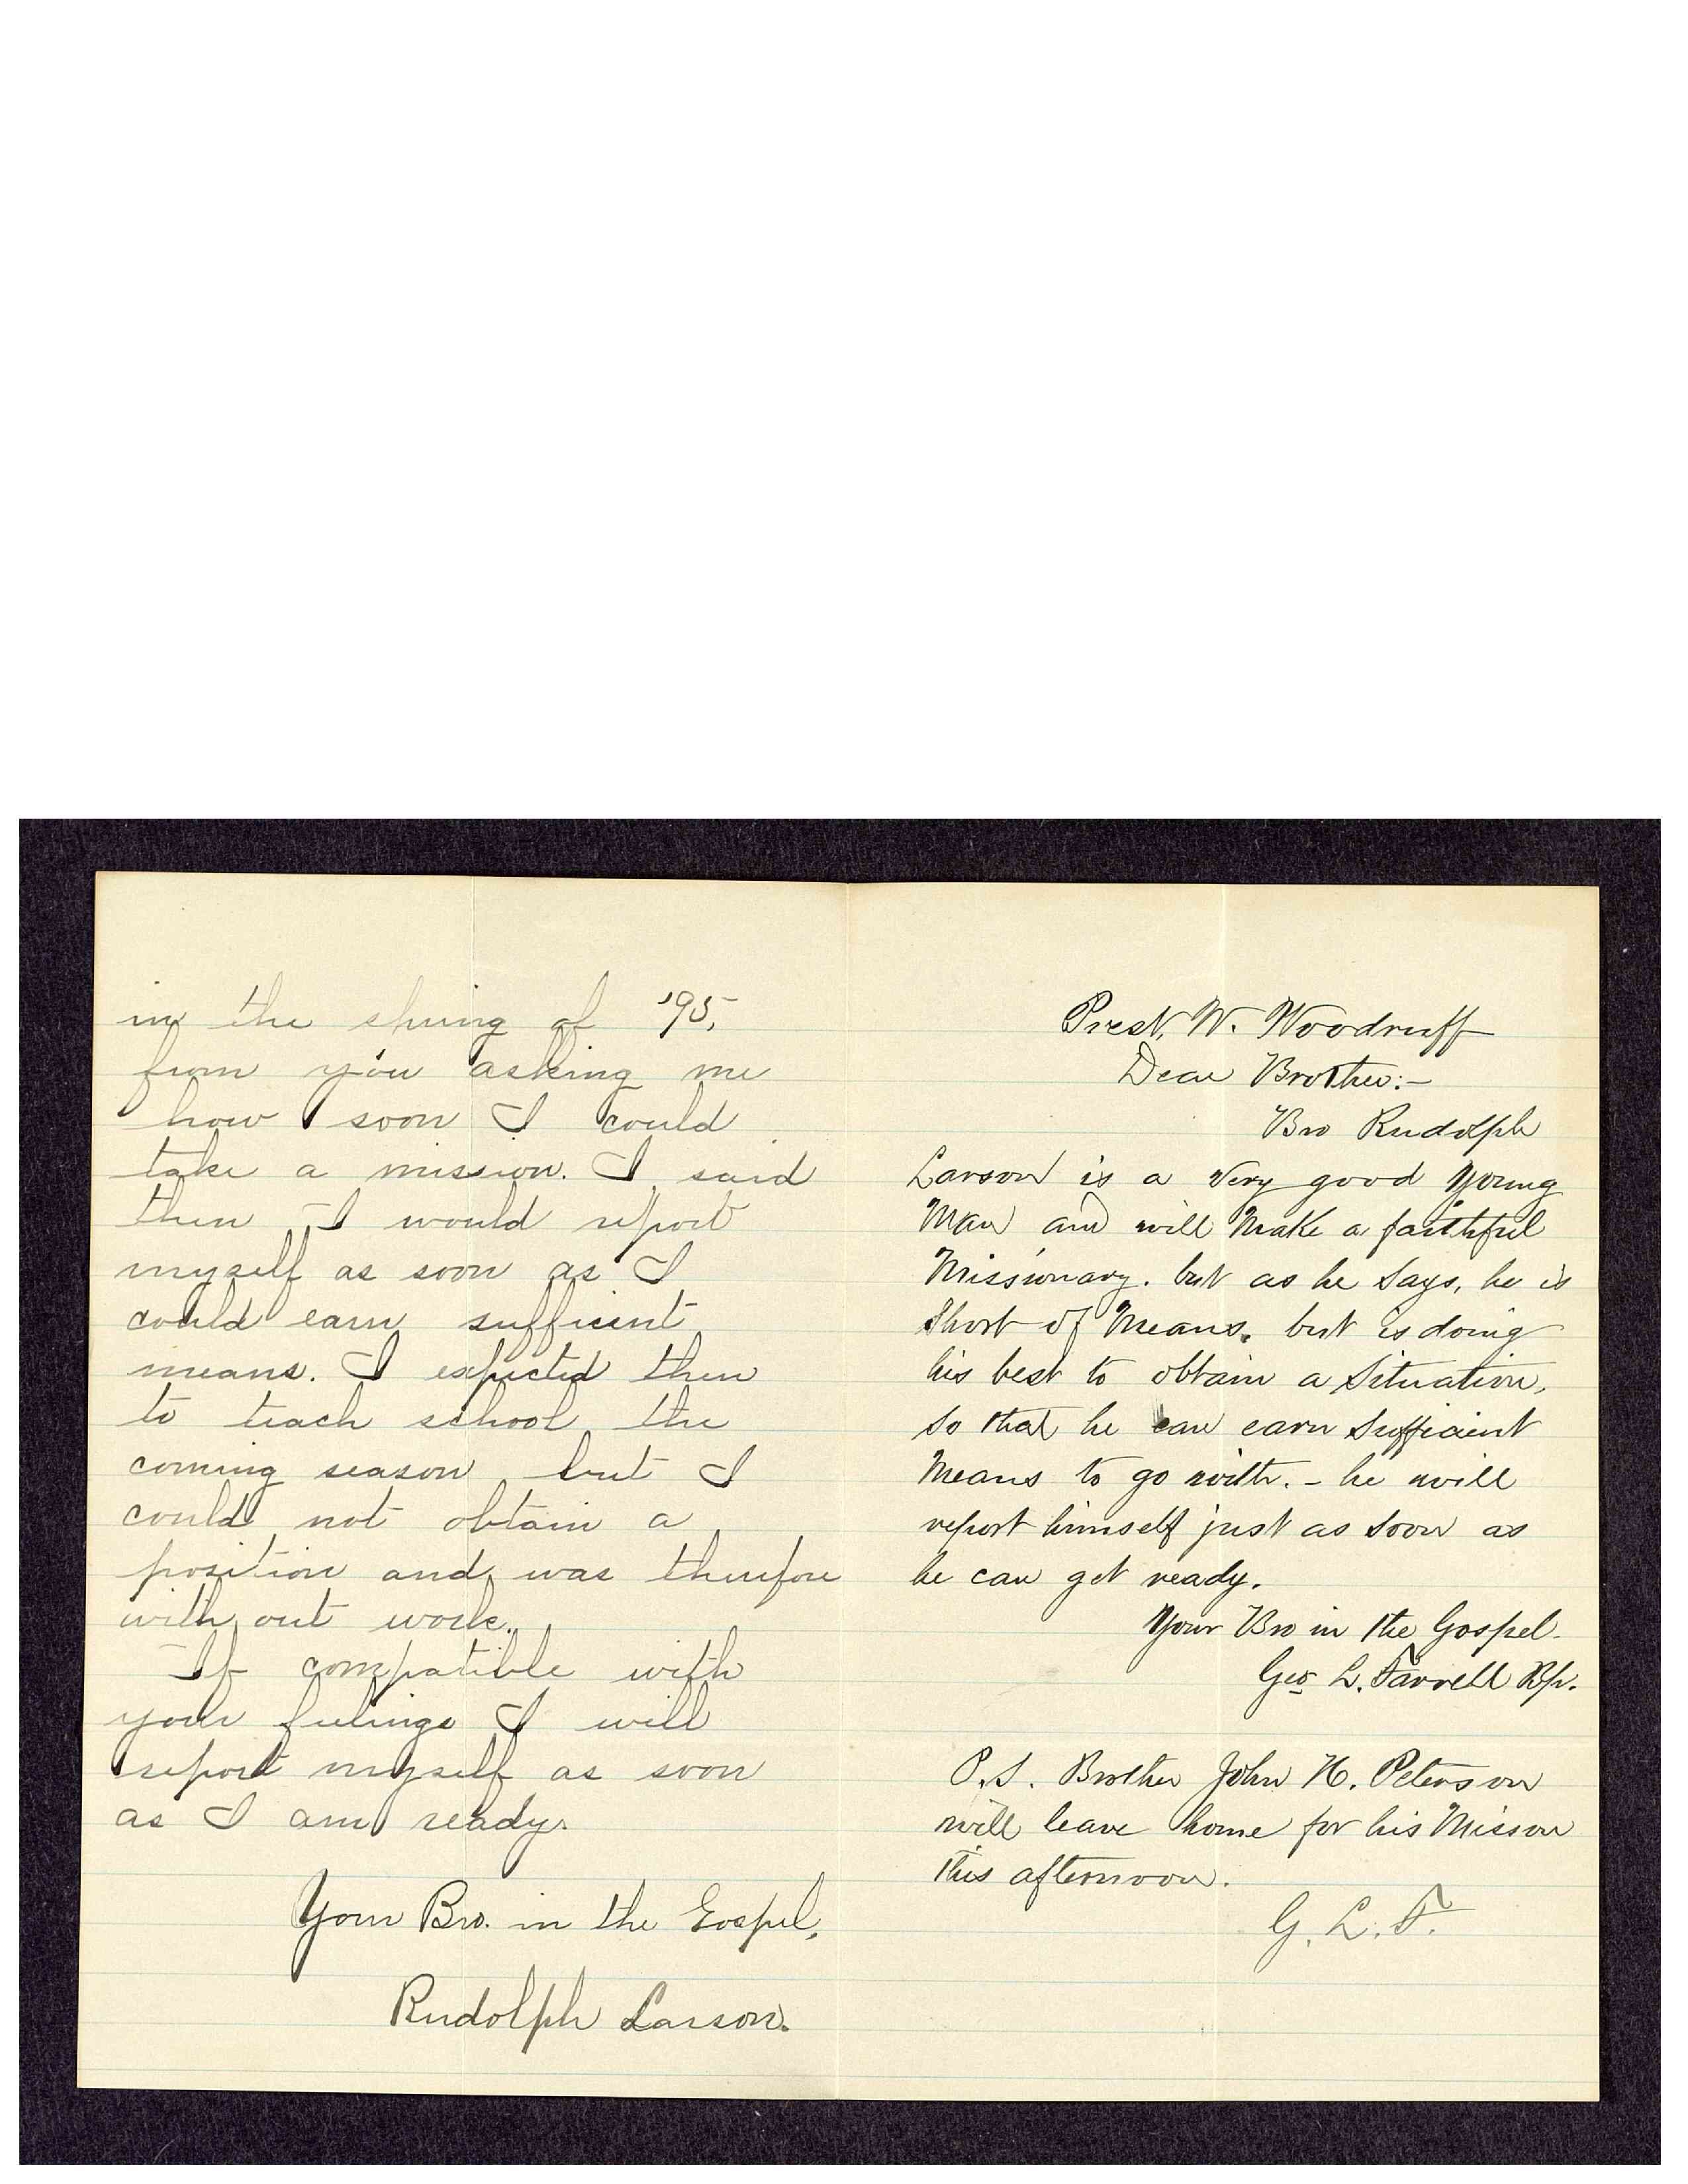 in the spring of '95,
from you asking me
how soon I could
take a mission. I said
then I would report
myself as soon as I
could earn sufficient
means. I expected then
to teach school the
coming season but I
could not obtain a
position and was therefore
with out work.
If compatible with
your feelings I will
report myself as soon
as I am ready.
Your Bro. in the Gospel,
Rudolph Larson.
Prest. W. Woodruff
Dear Brother:-
Bro Rudolph
Larson is a very good young
Man and will Make a faithful
Missionary. but as he Says, he is
Short of Means. but is doing
his best to obtain a Situation,
So that he can earn Sufficient
Means to go with. - he will
report himself just as Soon as
he can get ready.
Your Bro in the Gospel.
Geo L. Farrell Bp.
P.S. Brother John H. Peterson
will leave home for his Misson
this afternoon.
G. L. F.